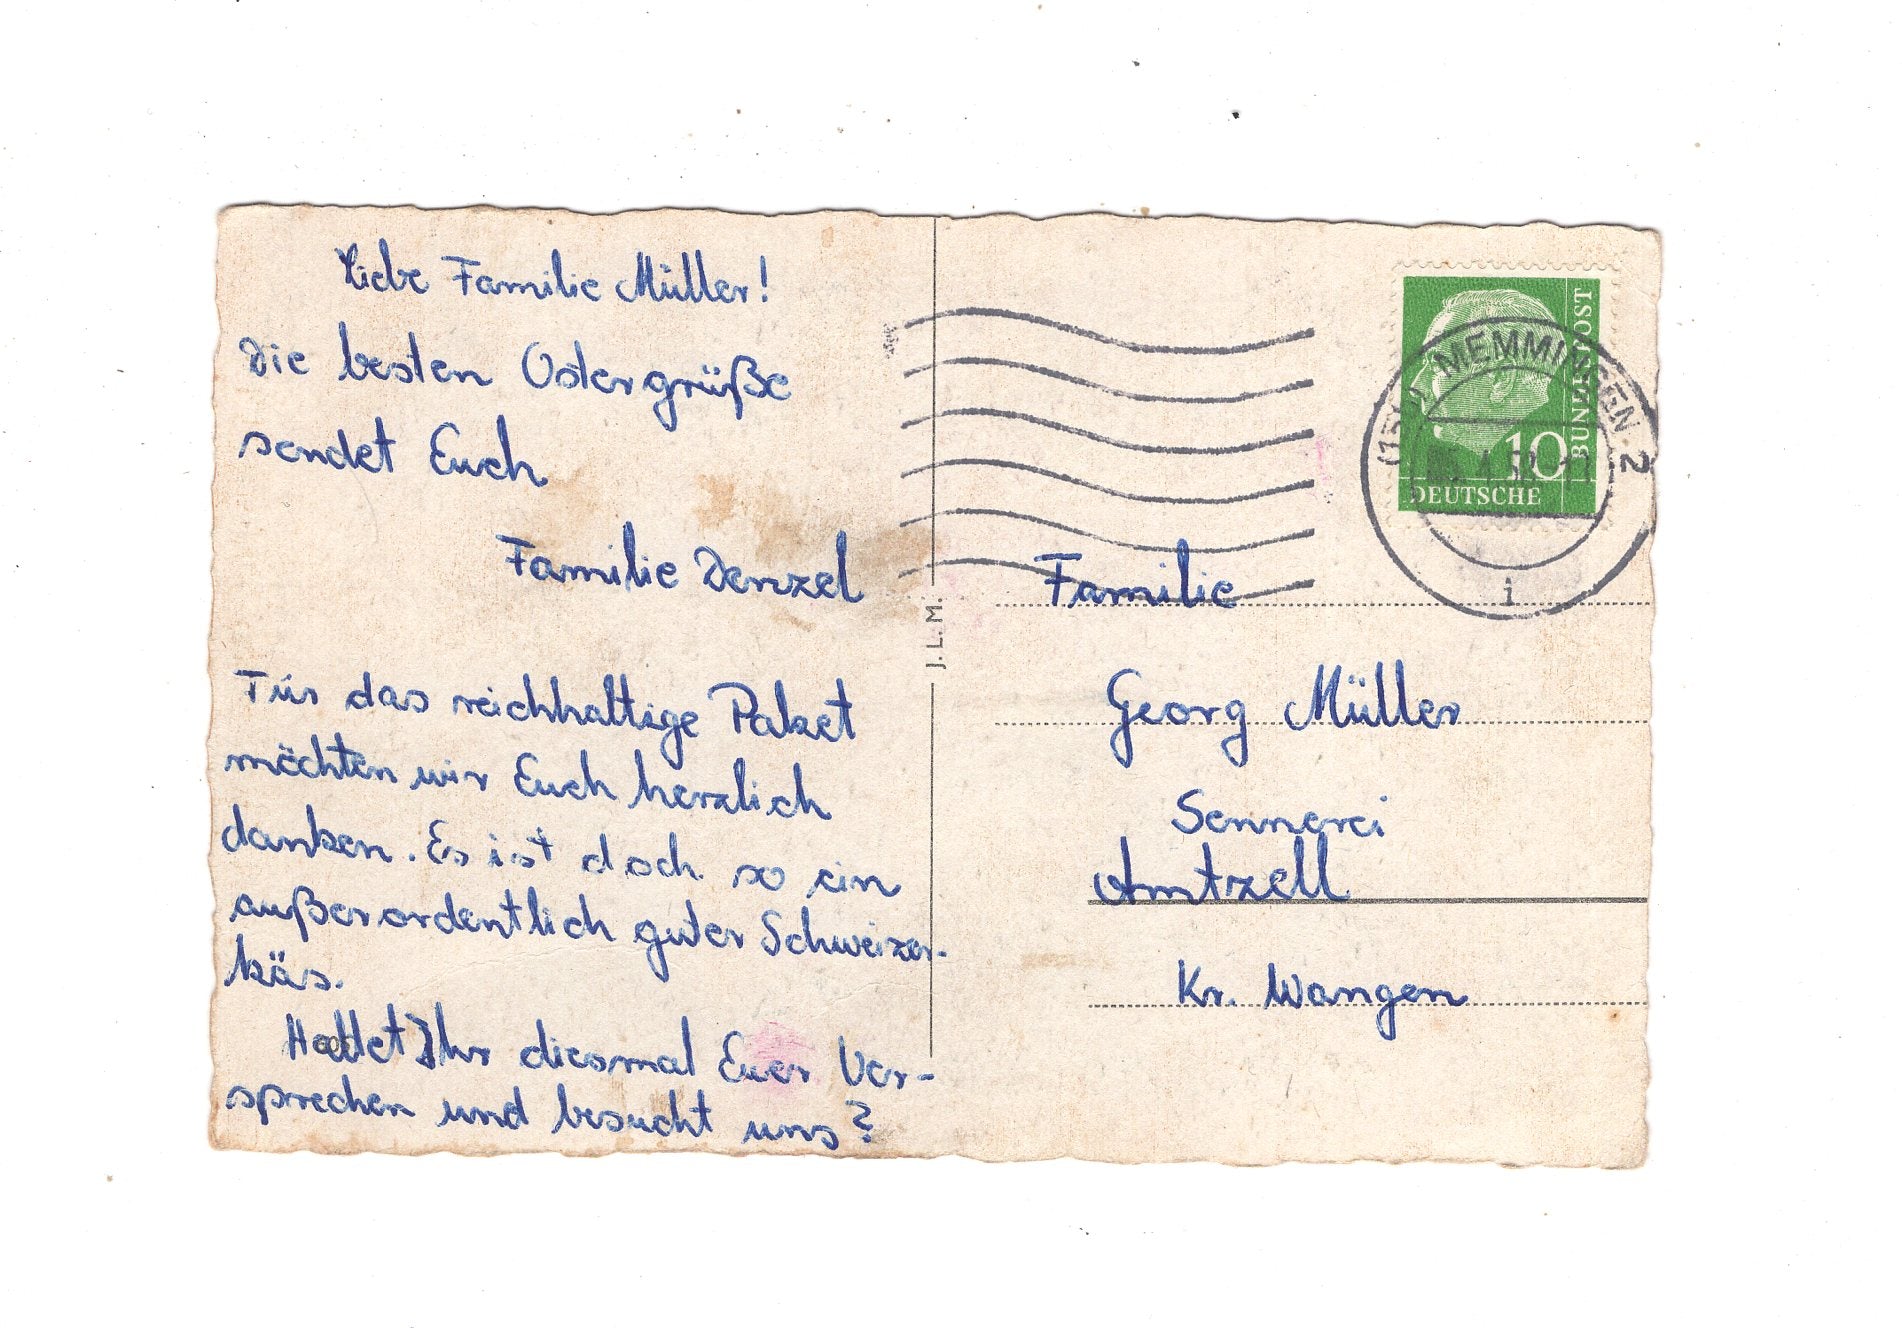 Liebe Familie Müller!
Die besten Ostergrüße
sendet Euch
Familie Denzel
Für das reichhaltige Paket
möchten wir Euch herzlich
danken. Es ist doch so ein
außerordentlich guter Schweizer-
käs.
Haltet Ihr diesmal Euer Ver-
sprechen und besucht uns?
J.L.M.
MEMMINGEN 2
i
BUNDESPOST
10
DEUTSCHE
Familie
Georg Müller
Sennerei
Amtzell
Kr. Wangen